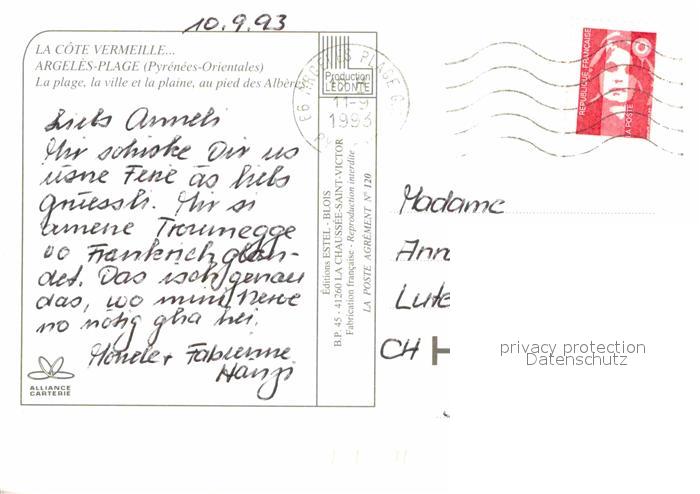 10.9.93
LA CÔTE VERMEILLE...
ARGELÈS-PLAGE (Pyrénées-Orientales)
La plage, la ville et la plaine, au pied des Albères
Liebs Anneli
Mir schicke Dir us
üsne Ferie äs liebs
grüessli. Mir si
amene Troumegge
vo Frankrich glan-
det. Das isch genau
das, wo mini Nerve
no nötig gha hei.
Monele + Fabienne
Hanzi
ALLIANCE
CARTERIE
Production
LECONTE
ARGELES PLAGE
11-9
1993
Éditions ESTEL - BLOIS
B.P. 45 - 41260 LA CHAUSSÉE-SAINT-VICTOR
Fabrication française - Reproduction interdite
LA POSTE AGRÉMENT N° 120
REPUBLIQUE FRANÇAISE
LA POSTE
Madame
Ann
Lute
CH
privacy protection
Datenschutz